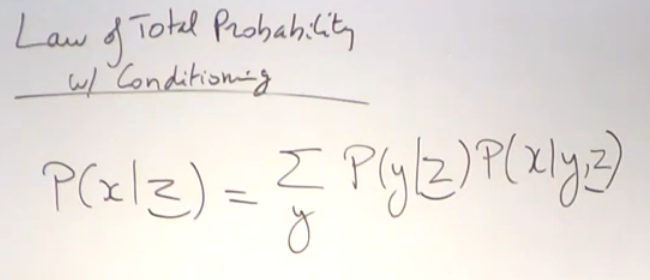 Law of Total Probability
w/ Conditioning
P(x|z) = Σ P(y|z) P(x|y,z)
y